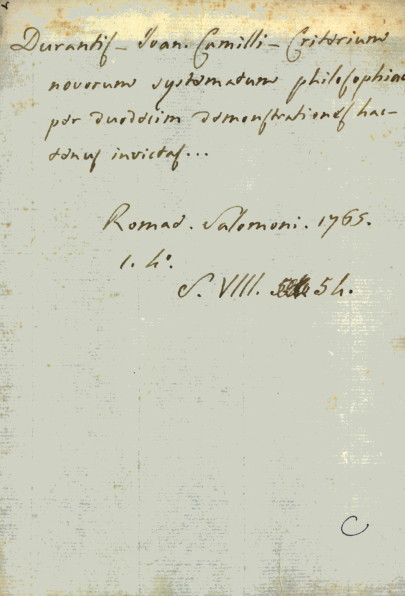 Durantis - Joan. Camilli - Criterium
novorum systematum philosophiae
per duodecim demonstrationes hac-
tenus invictas...
Romae. Salomoni. 1765.
1. 4°.
S. VIII. 54.
C